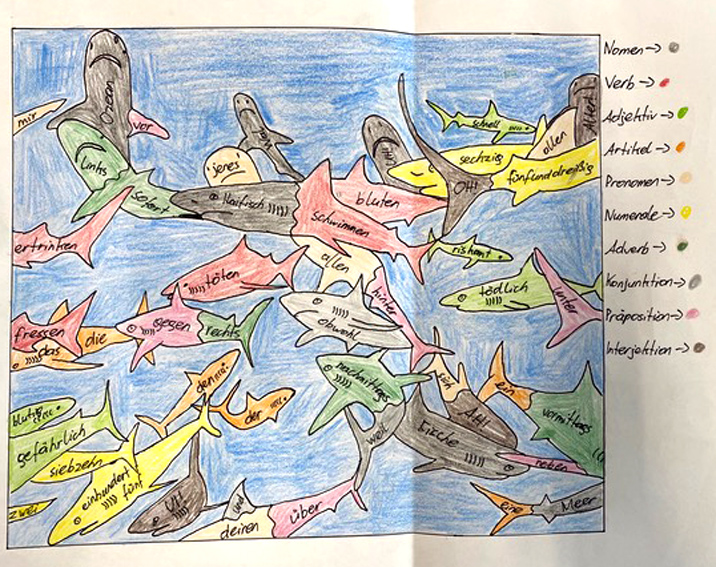 Nomen →
Verb →
Adjektiv →
Artikel →
Pronomen →
Numerale →
Adverb →
Konjunktion →
Präposition →
Interjektion →
Ozean
mir
vor
links
jenes
schnell
allen
sechzig
fünfunddreißig
OH!
sofort
Haifisch
bluten
schwimmen
ertrinken
allen
riskant
töten
tödlich
hinter
unter
obwohl
fressen
die
gegen
rechts
das
den
nachmittags
sich
ein
der
AH!
vormittags
blutig
gefährlich
weil
Fische
siebzehn
neben
einhundert
fünf
zwei
UI!
und
über
deinen
eine
Meer